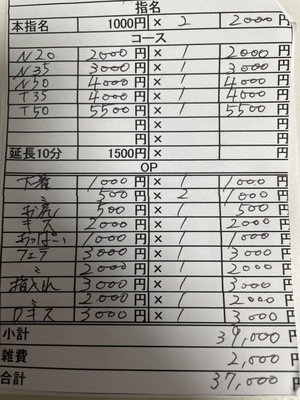 指名
本指名 1000円 × 2 2000円
コース
N20 2000円 × 1 2000円
N35 3000円 × 1 3000円
N50 4000円 × 1 4000円
T35 4000円 × 1 4000円
T50 5500円 × 1 5500円
円 × 円
円 × 円
延長10分 1500円 × 円
OP
下着 1000円 × 1 1000円
〃 500円 × 2 1000円
お尻 500円 × 1 500円
キス 2000円 × 1 2000円
おっぱい 1000円 × 1 1000円
フェラ 3000円 × 1 3000円
〃 2000円 × 1 2000円
指入れ 3000円 × 1 3000円
〃 2000円 × 1 2000円
Dキス 3000円 × 1 3000円
小計 39,000円
雑費 2,000円
合計 37,000円